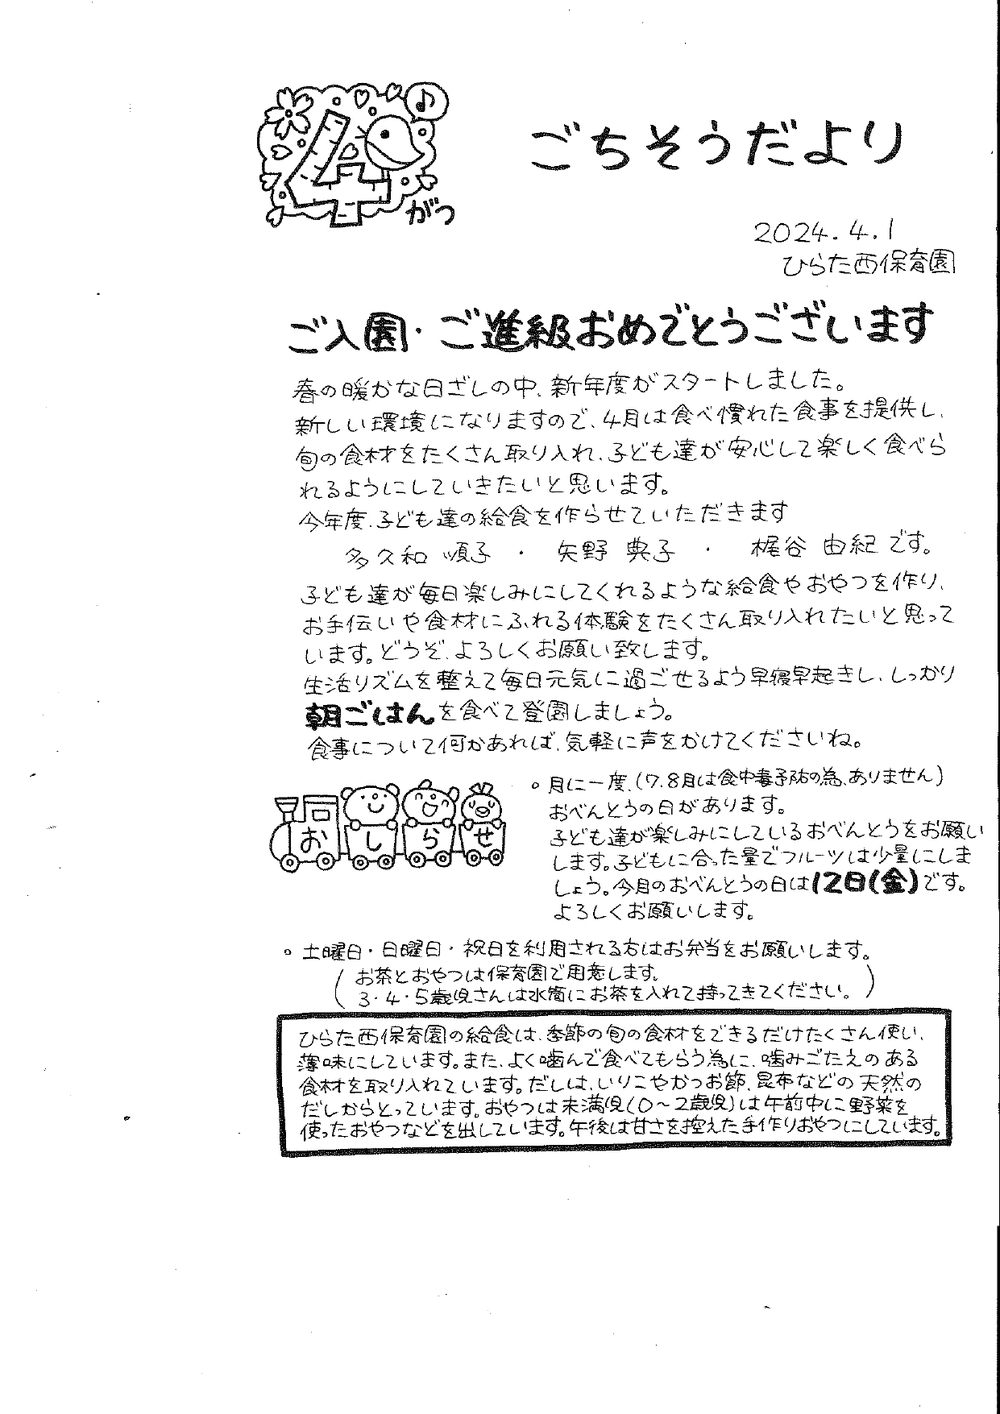 4がつ
ごちそうだより
2024.4.1
ひらた西保育園
ご入園・ご進級おめでとうございます
春の暖かな日ざしの中、新年度がスタートしました。
新しい環境になりますので、4月は食べ慣れた食事を提供し、
旬の食材をたくさん取り入れ、子ども達が安心して楽しく食べら
れるようにしていきたいと思います。
今年度、子ども達の給食を作らせていただきます
多久和 順子 ・ 矢野 典子 ・ 梶谷 由紀です。
子ども達が毎日楽しみにしてくれるような給食やおやつを作り、
お手伝いや食材にふれる体験をたくさん取り入れたいと思って
います。どうぞ、よろしくお願い致します。
生活リズムを整えて毎日元気に過ごせるよう早寝早起きし、しっかり
朝ごはんを食べて登園しましょう。
食事について何かあれば、気軽に声をかけてくださいね。
おしらせ
○月に一度、(7.8月は食中毒予防の為、ありません)
おべんとうの日があります。
子ども達が楽しみにしているおべんとうをお願い
します。子どもに合った量でフルーツは少量にしま
しょう。今月のおべんとうの日は12日(金)です。
よろしくお願いします。
○土曜日・日曜日・祝日を利用される方はお弁当をお願いします。
(お茶とおやつは保育園で用意します。
3・4・5歳児さんは水筒にお茶を入れて持ってきてください。)
ひらた西保育園の給食は、季節の旬の食材をできるだけたくさん使い、
薄味にしています。また、よく噛んで食べてもらう為に、噛みごたえのある
食材を取り入れています。だしは、いりこやかつお節、昆布などの天然の
だしからとっています。おやつは未満児(0~2歳児)は午前中に野菜を
使ったおやつなどを出しています。午後は甘さを控えた手作りおやつにしています。